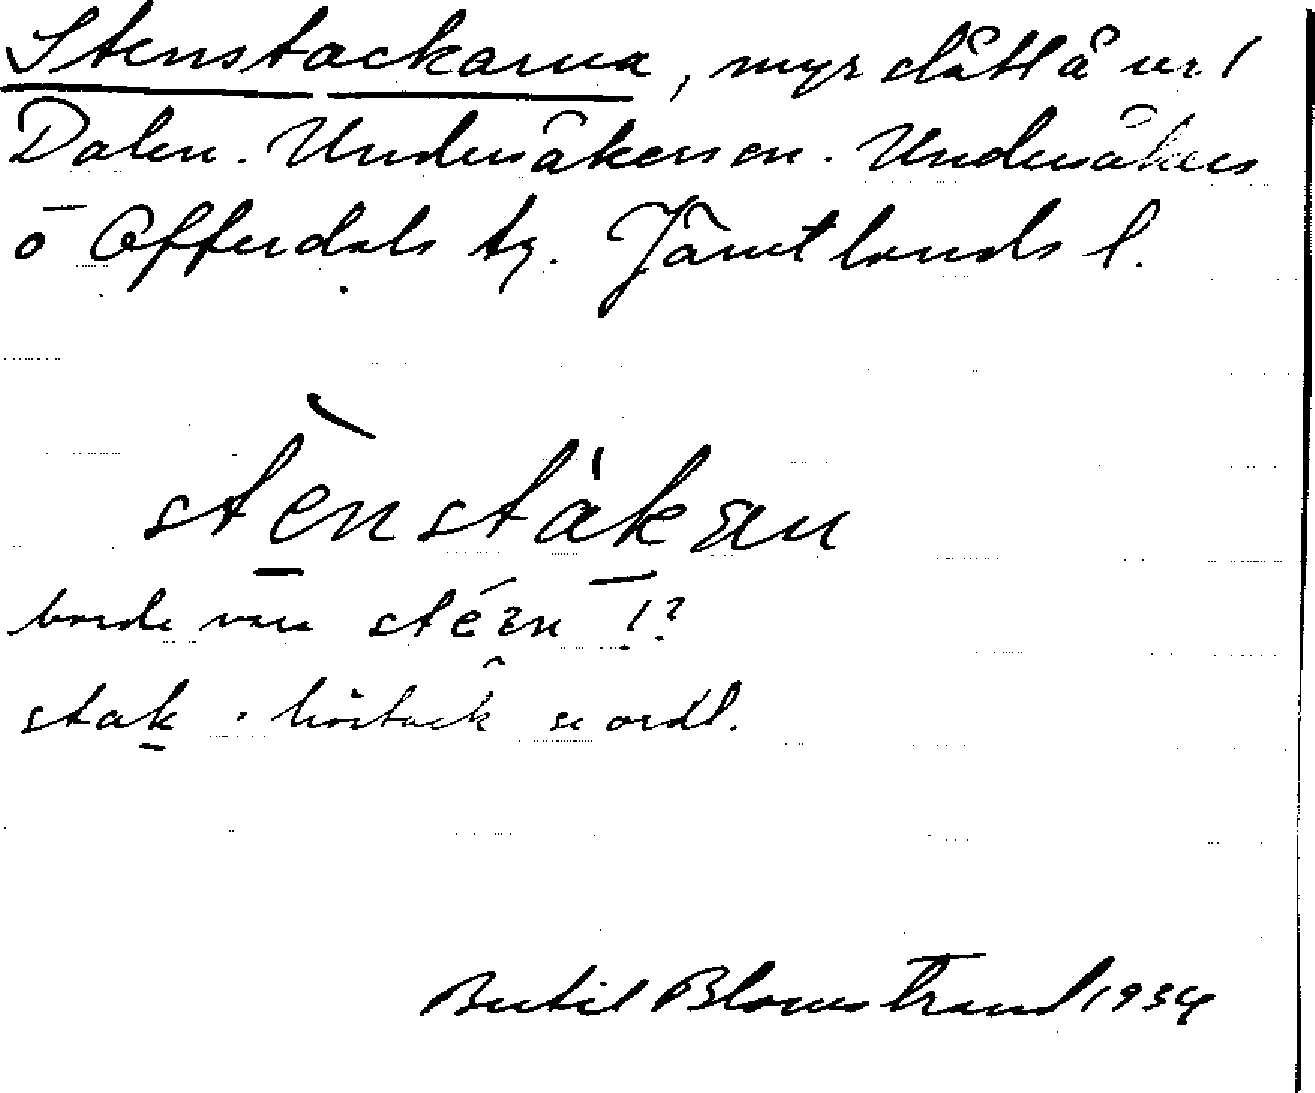 Stenstackarna, myr slåttå ver l
Dalen. Undersåkers sn. Undersåkers
o Offerdals tg. Jämtlands l.
stènstákan
borde vara
stak · höstack se ordl.
Bertil Blomstrand 1934